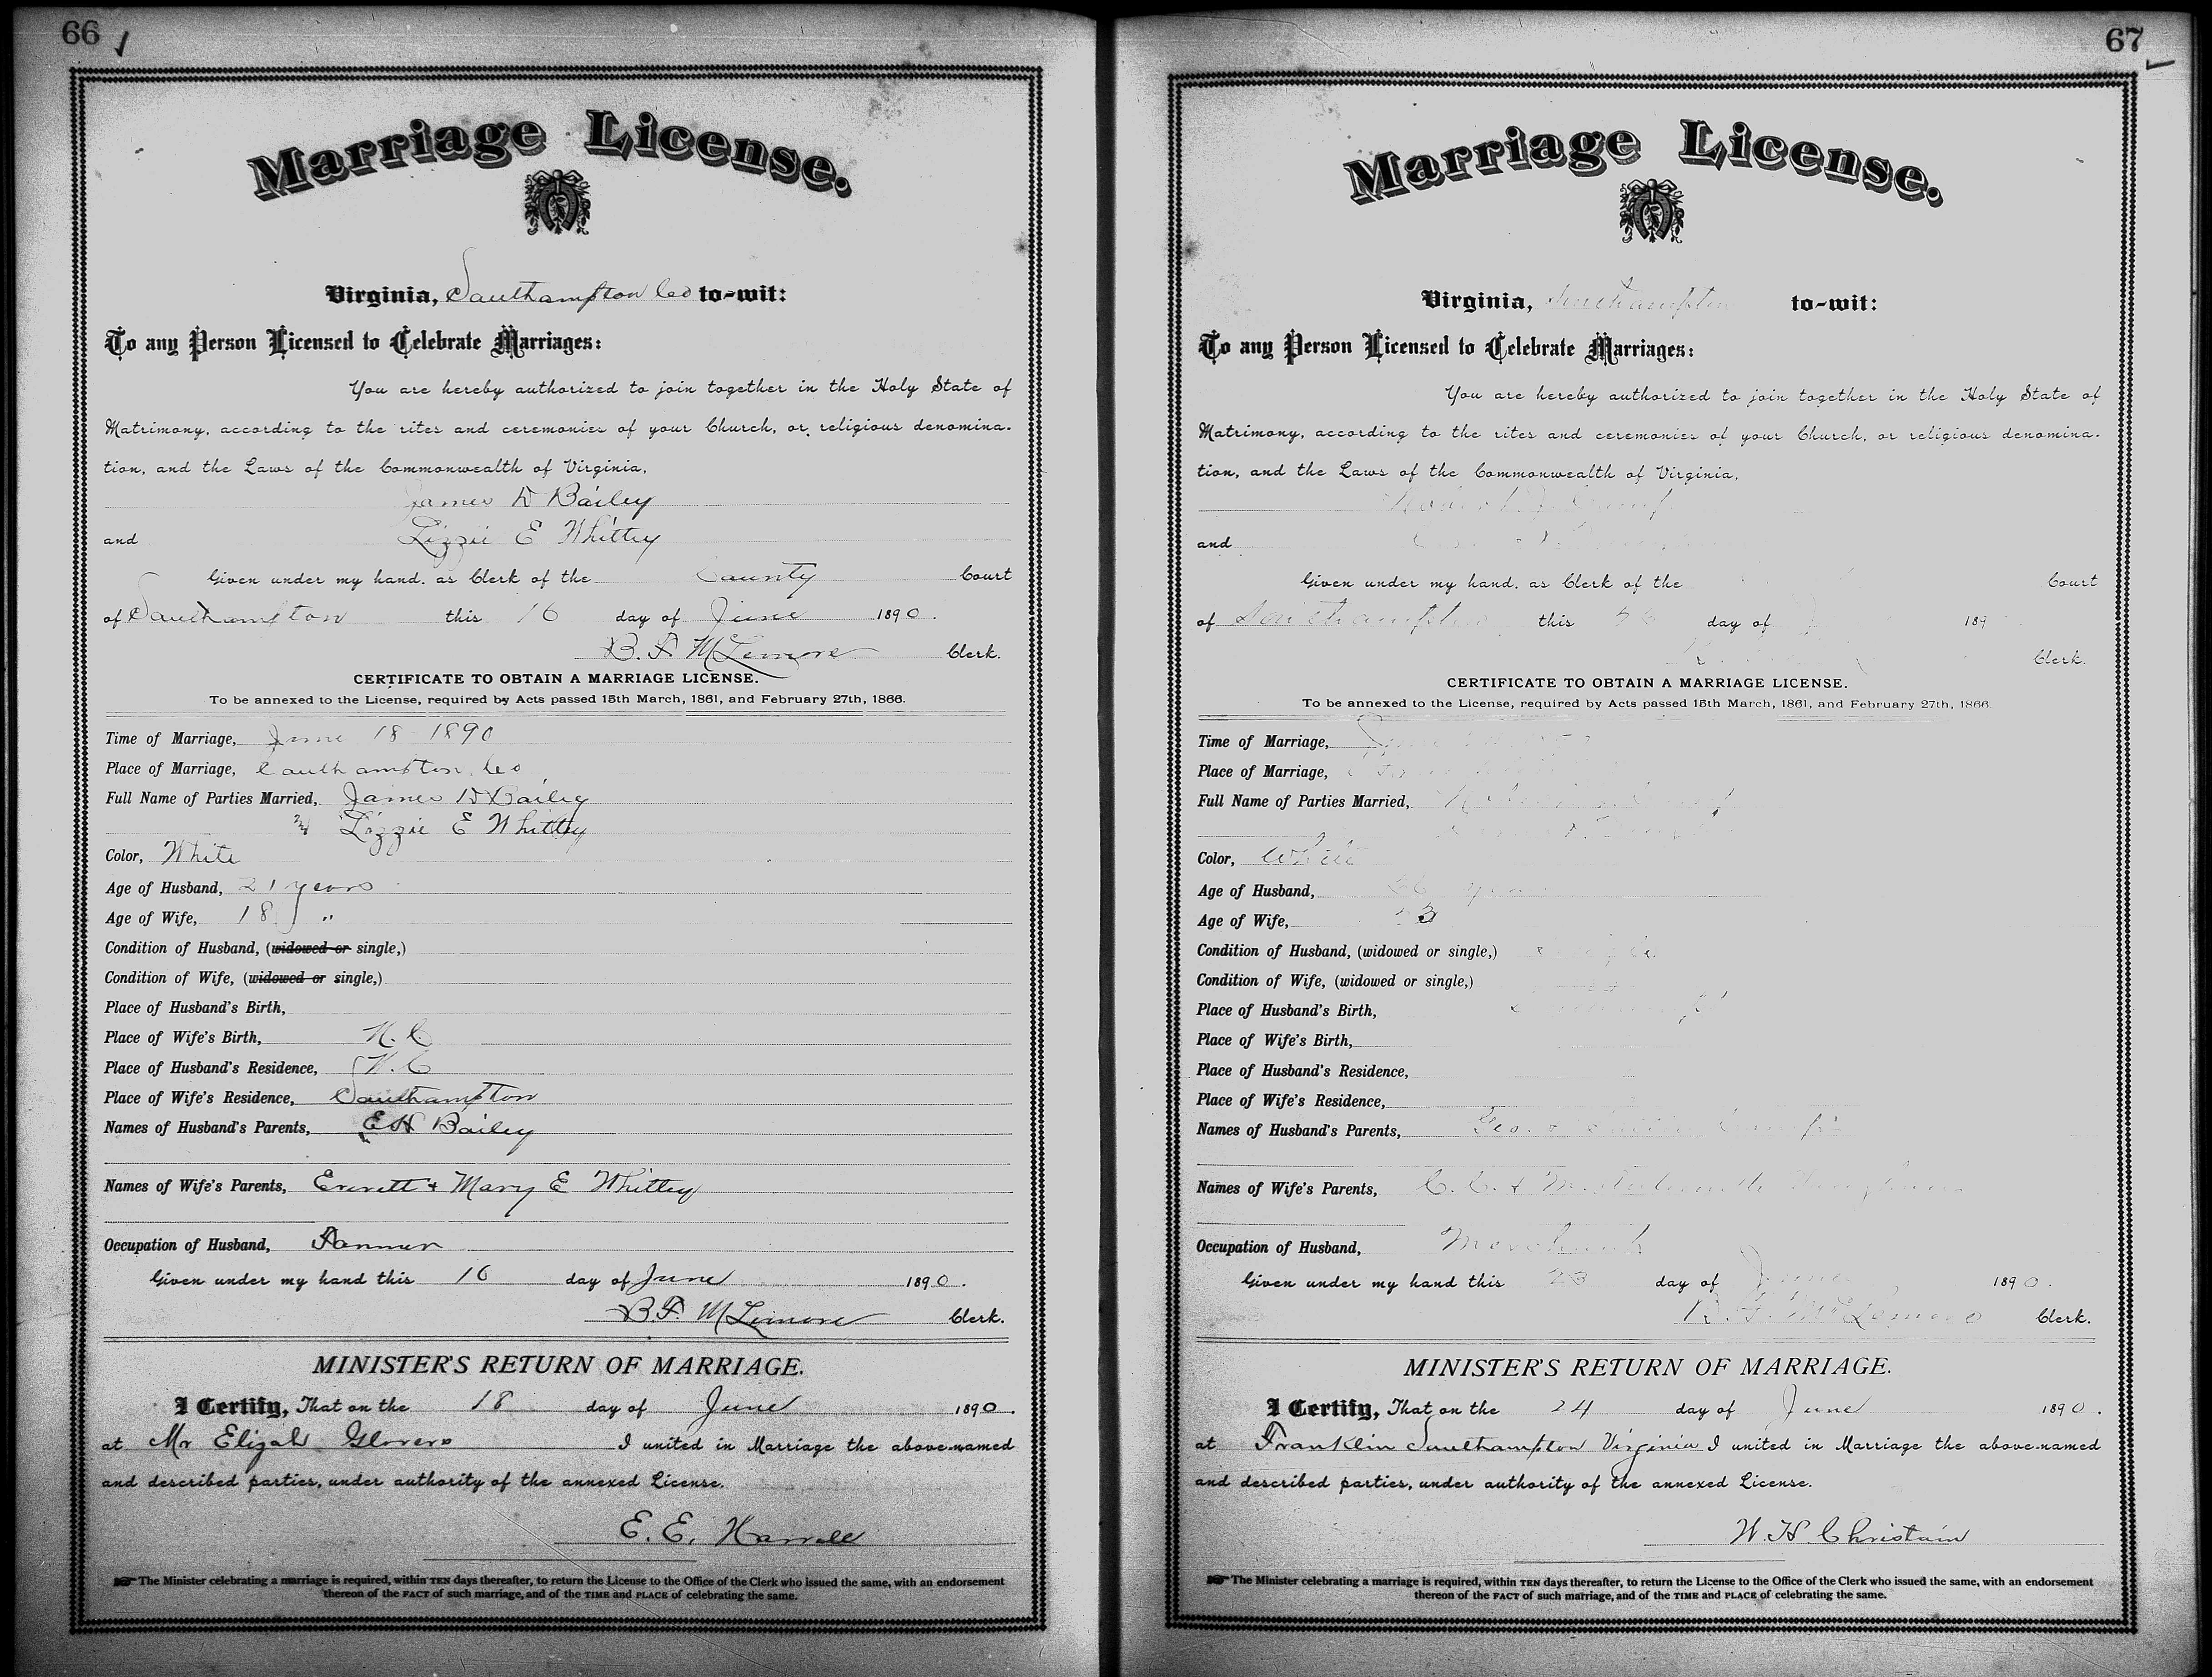 66
Marriage License.
Virginia, Southampton Co to-wit:
To any Person Licensed to Celebrate Marriages:
You are hereby authorized to join together in the Holy State of
Matrimony, according to the rites and ceremonies of your Church, or religious denomina-
tion, and the Laws of the Commonwealth of Virginia,
James D Bailey
and Lizzie E Whitley
Given under my hand, as Clerk of the County Court
of Southampton this 16 day of June 1890.
B. F. McLemore Clerk.
CERTIFICATE TO OBTAIN A MARRIAGE LICENSE.
To be annexed to the License, required by Acts passed 15th March, 1861, and February 27th, 1866.
Time of Marriage, June 18 1890
Place of Marriage, Southampton Co
Full Name of Parties Married, James D Bailey
& Lizzie E Whitley
Color, White
Age of Husband, 21 years
Age of Wife, 18 "
Condition of Husband, (widowed or single,)
Condition of Wife, (widowed or single,)
Place of Husband's Birth,
Place of Wife's Birth, N. C
Place of Husband's Residence, N. C
Place of Wife's Residence, Southampton
Names of Husband's Parents, E H Bailey
Names of Wife's Parents, Everett & Mary E Whitley
Occupation of Husband, Farmer
Given under my hand this 16 day of June 1890.
B. F. McLemore Clerk.
MINISTER'S RETURN OF MARRIAGE.
I Certify, That on the 18 day of June 1890.
at Mr Elijah Glovers I united in Marriage the above-named
and described parties, under authority of the annexed License.
E. E. Harrell
The Minister celebrating a marriage is required, within TEN days thereafter, to return the License to the Office of the Clerk who issued the same, with an endorsement
thereof of the FACT of such marriage, and of the TIME and PLACE of celebrating the same.
67
Marriage License.
Virginia, Southampton to-wit:
To any Person Licensed to Celebrate Marriages:
You are hereby authorized to join together in the Holy State of
Matrimony, according to the rites and ceremonies of your Church, or religious denomina-
tion, and the Laws of the Commonwealth of Virginia,
and
Given under my hand, as Clerk of the Court
of Southampton this day of 189
Clerk.
CERTIFICATE TO OBTAIN A MARRIAGE LICENSE.
To be annexed to the License, required by Acts passed 15th March, 1861, and February 27th, 1866.
Time of Marriage,
Place of Marriage,
Full Name of Parties Married,
Color, White
Age of Husband,
Age of Wife,
Condition of Husband, (widowed or single,) single
Condition of Wife, (widowed or single,)
Place of Husband's Birth,
Place of Wife's Birth,
Place of Husband's Residence,
Place of Wife's Residence,
Names of Husband's Parents, Geo.
Names of Wife's Parents, C. C. & M.
Occupation of Husband, Merchant
Given under my hand this 23 day of June 1890.
B. F. McLemore Clerk.
MINISTER'S RETURN OF MARRIAGE.
I Certify, That on the 24 day of June 1890.
at Franklin Southampton Virginia I united in Marriage the above-named
and described parties, under authority of the annexed License.
W. H. Christain
The Minister celebrating a marriage is required, within TEN days thereafter, to return the License to the Office of the Clerk who issued the same, with an endorsement
thereon of the FACT of such marriage, and of the TIME and PLACE of celebrating the same.